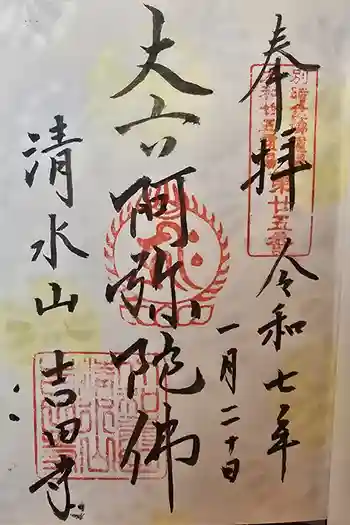 奉拝
令和七年
一月二十日
丈六阿弥陀佛
清水山
吉田寺
第廿五番